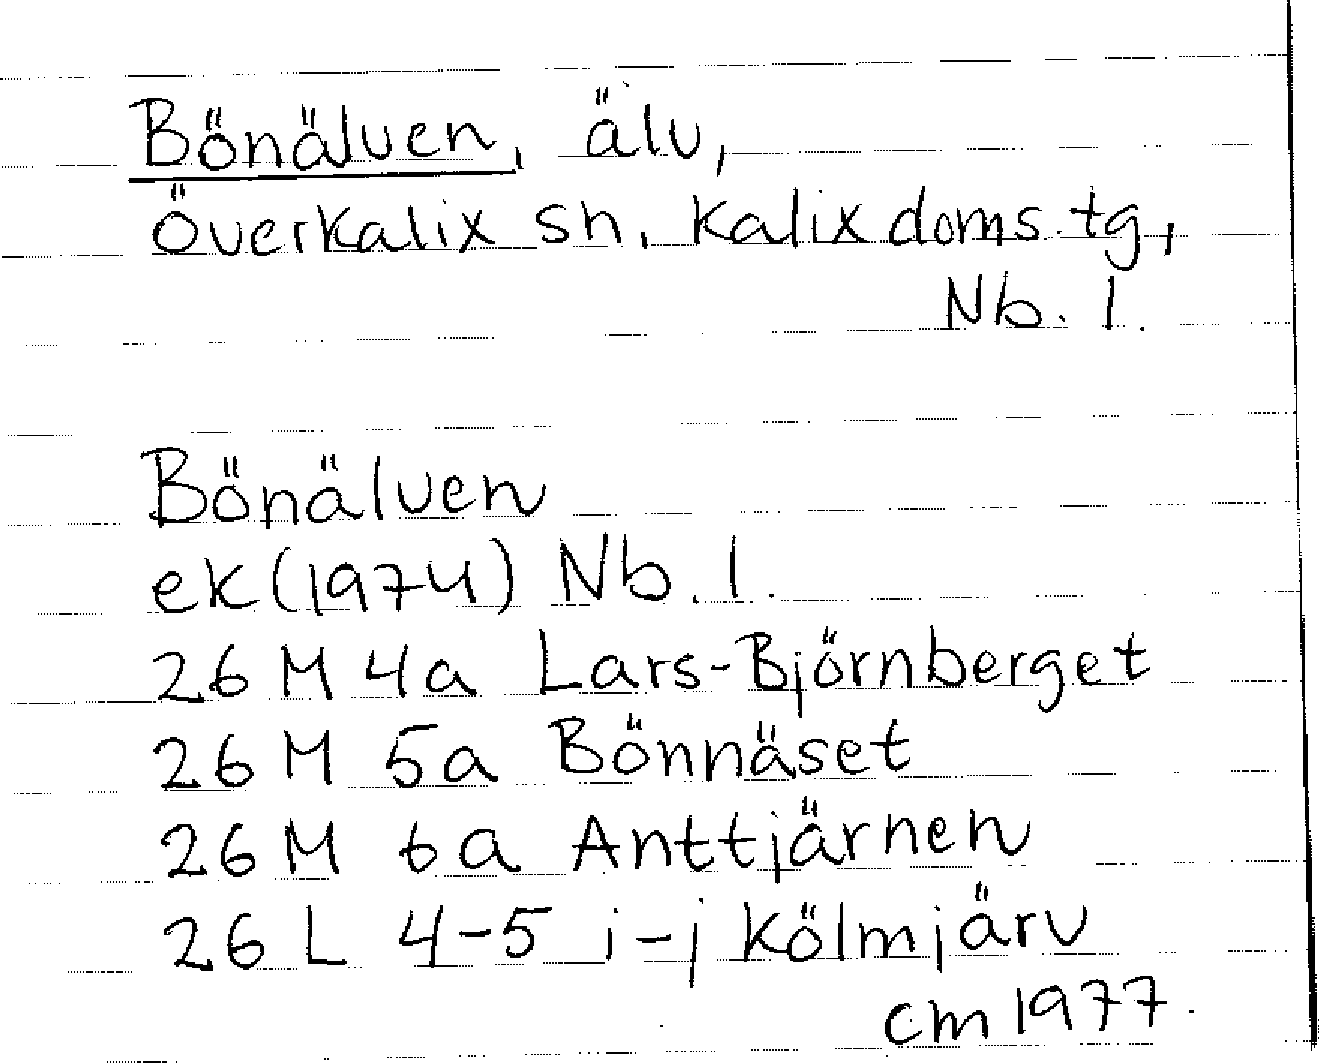 Bönälven, älv,
Överkalix sn, Kalix doms. tg,
Nb. l.
Bönälven
ek (1974) Nb. l.
26 M 4a Lars-Björnberget
26 M 5a Bönnäset
26 M 6a Anttjärnen
26 L 4-5 i-j Kölmjärv
cm 1977.